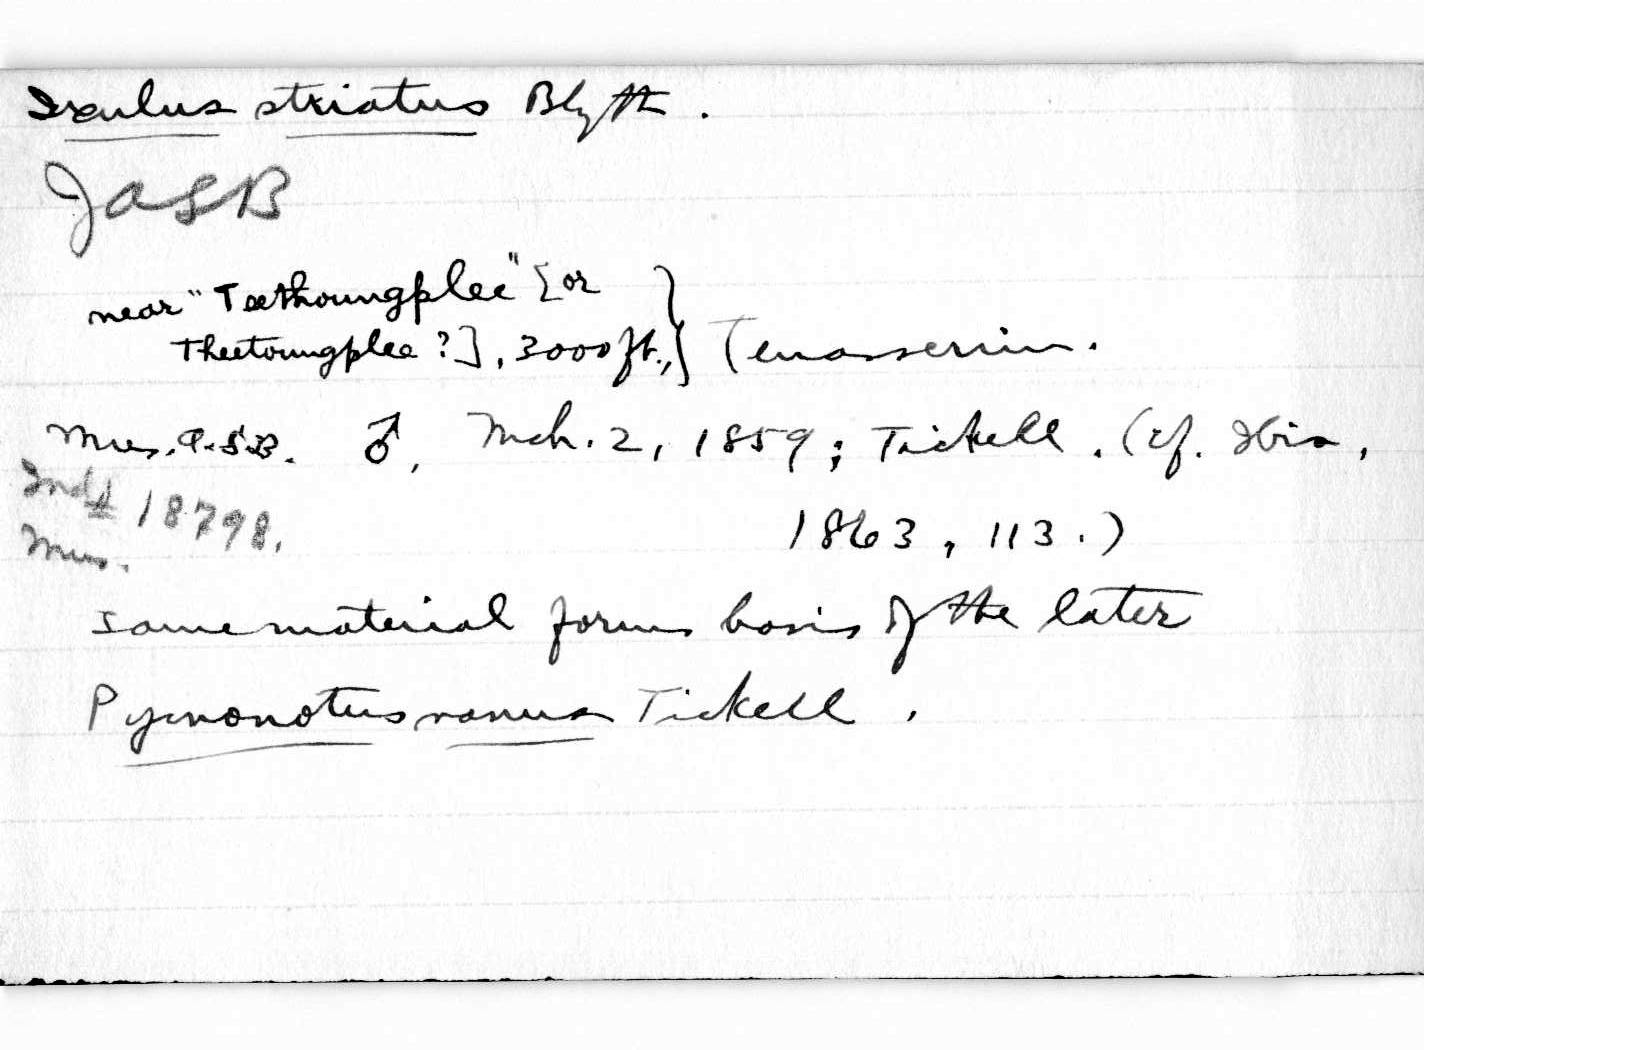 Ixulus striatus Blyth.
JASB
near "Teethoungplee" [or
Theetoungplee?], 3000 ft.,} Tenasserim.
Mus. A.S.B. ♂, Mch. 2, 1859; Tickell. (cf. Ibis,
Ind. 18798.
1863, 113.)
Mus.
Same material forms basis of the later
Pycnonotus nanus Tickell.